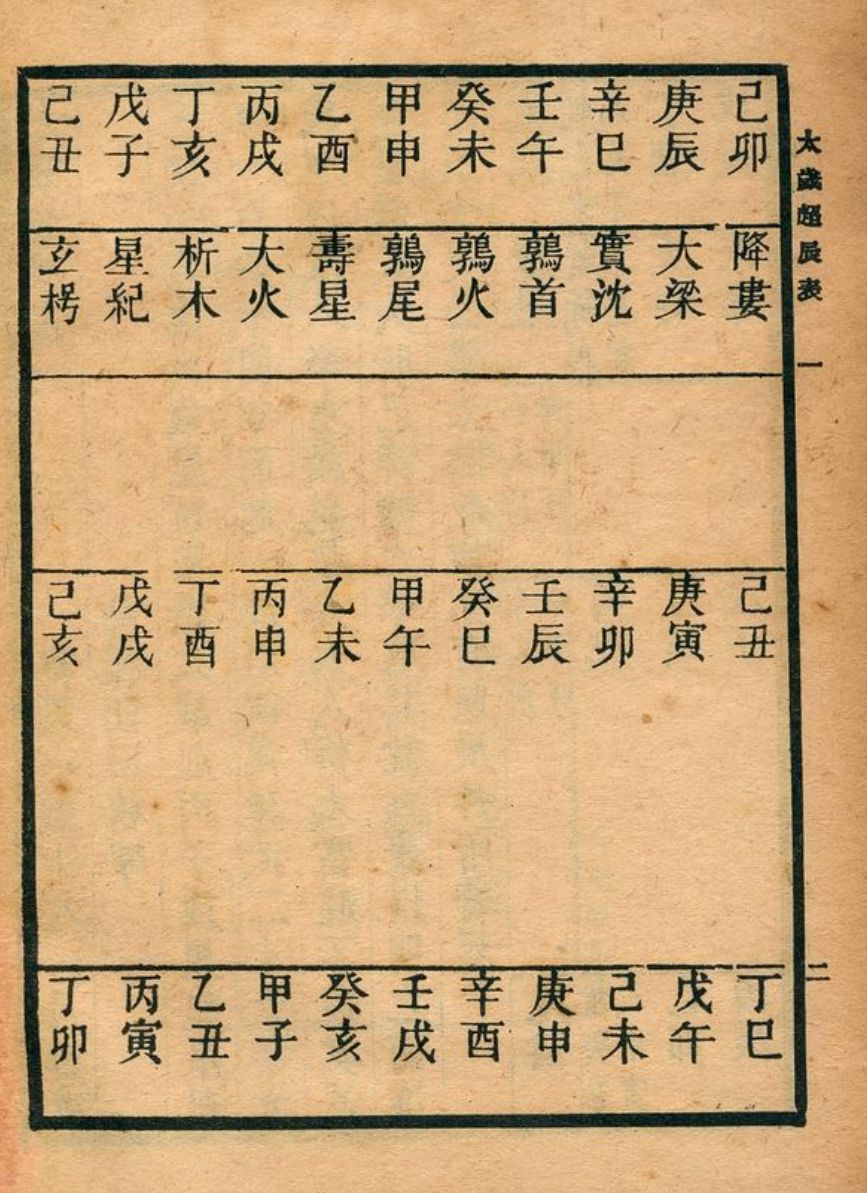 太歲超辰表 一 二
己卯 降婁 己丑 丁巳
庚辰 大梁 庚寅 戊午
辛巳 實沈 辛卯 己未
壬午 鶉首 壬辰 庚申
癸未 鶉火 癸巳 辛酉
甲申 鶉尾 甲午 壬戌
乙酉 壽星 乙未 癸亥
丙戌 大火 丙申 甲子
丁亥 析木 丁酉 乙丑
戊子 星紀 戊戌 丙寅
己丑 玄枵 己亥 丁卯